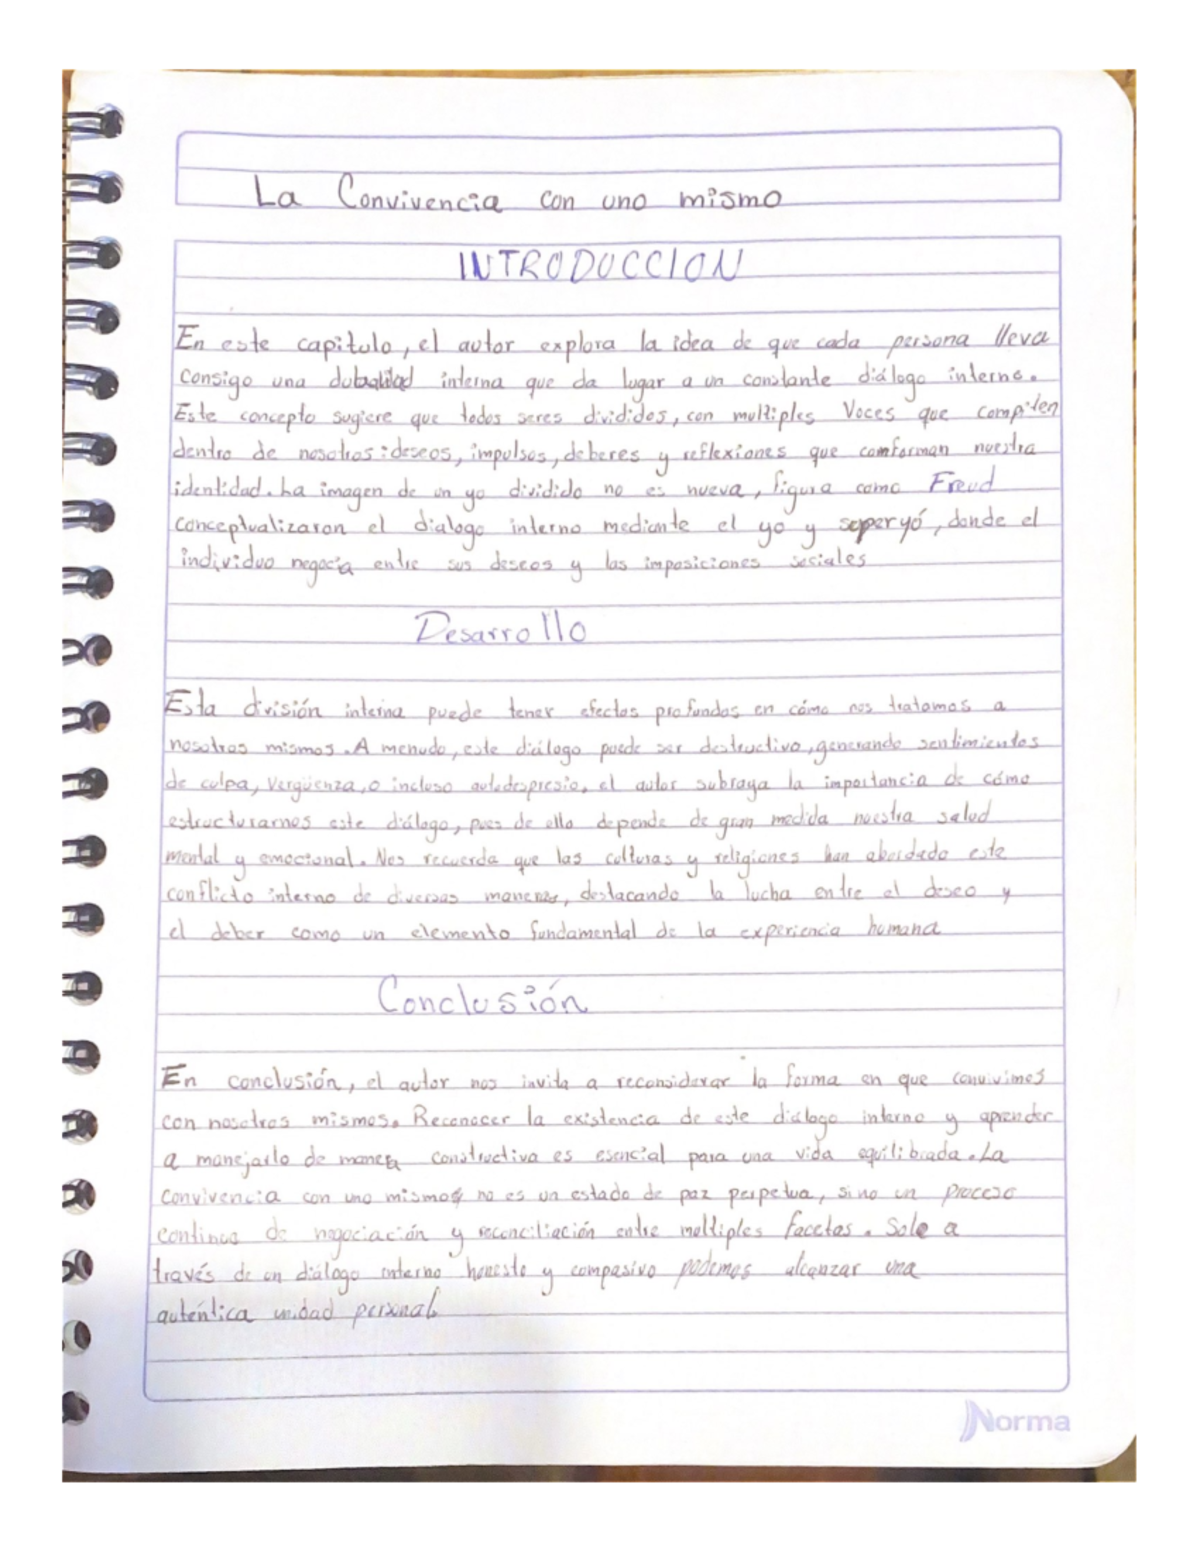 La Convivencia con uno mismo
INTRODUCCION
En este capitulo, el autor explora la idea de que cada persona lleva
consigo una dubalidad interna que da lugar a un constante diálogo interno.
Este concepto sugiere que todos seres divididos, con multiples Voces que compiten
dentro de nosotros: deseos, impulsos, deberes y reflexiones que comforman nuestra
identidad. La imagen de un yo dividido no es nueva, figura como Freud
conceptualizaron el dialogo interno mediante el yo y superyó, donde el
individuo negocia entre sus deseos y las imposiciones sociales
Desarrollo
Esta división interna puede tener efectos profundos en cómo nos tratamos a
nosotros mismos. A menudo, este diálogo puede ser destructivo, generando sentimientos
de culpa, vergüenza, o incluso autodespresio, el autor subraya la importancia de cómo
estructurarnos este diálogo, pues de ello depende de gran medida nuestra salud
mental y emocional. Nos recuerda que las culturas y religiones han abordado este
conflicto interno de diversas maneras, destacando la lucha entre el deseo y
el deber como un elemento fundamental de la experiencia humana
Conclusión
En conclusión, el autor nos invita a reconsiderar la forma en que convivimos
con nosotros mismos. Reconocer la existencia de este diálogo interno y aprender
a manejarlo de manera constructiva es esencial para una vida equilibrada. La
convivencia con uno mismos no es un estado de paz perpetua, sino un proceso
continuo de negociación y reconciliación entre multiples facetas. Solo a
través de un diálogo interno honesto y compasivo podemos alcanzar una
auténtica unidad personal.
Norma